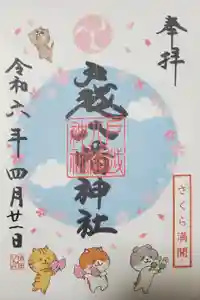 奉拝
戸越八幡神社
令和六年四月廿一日
さくら満開